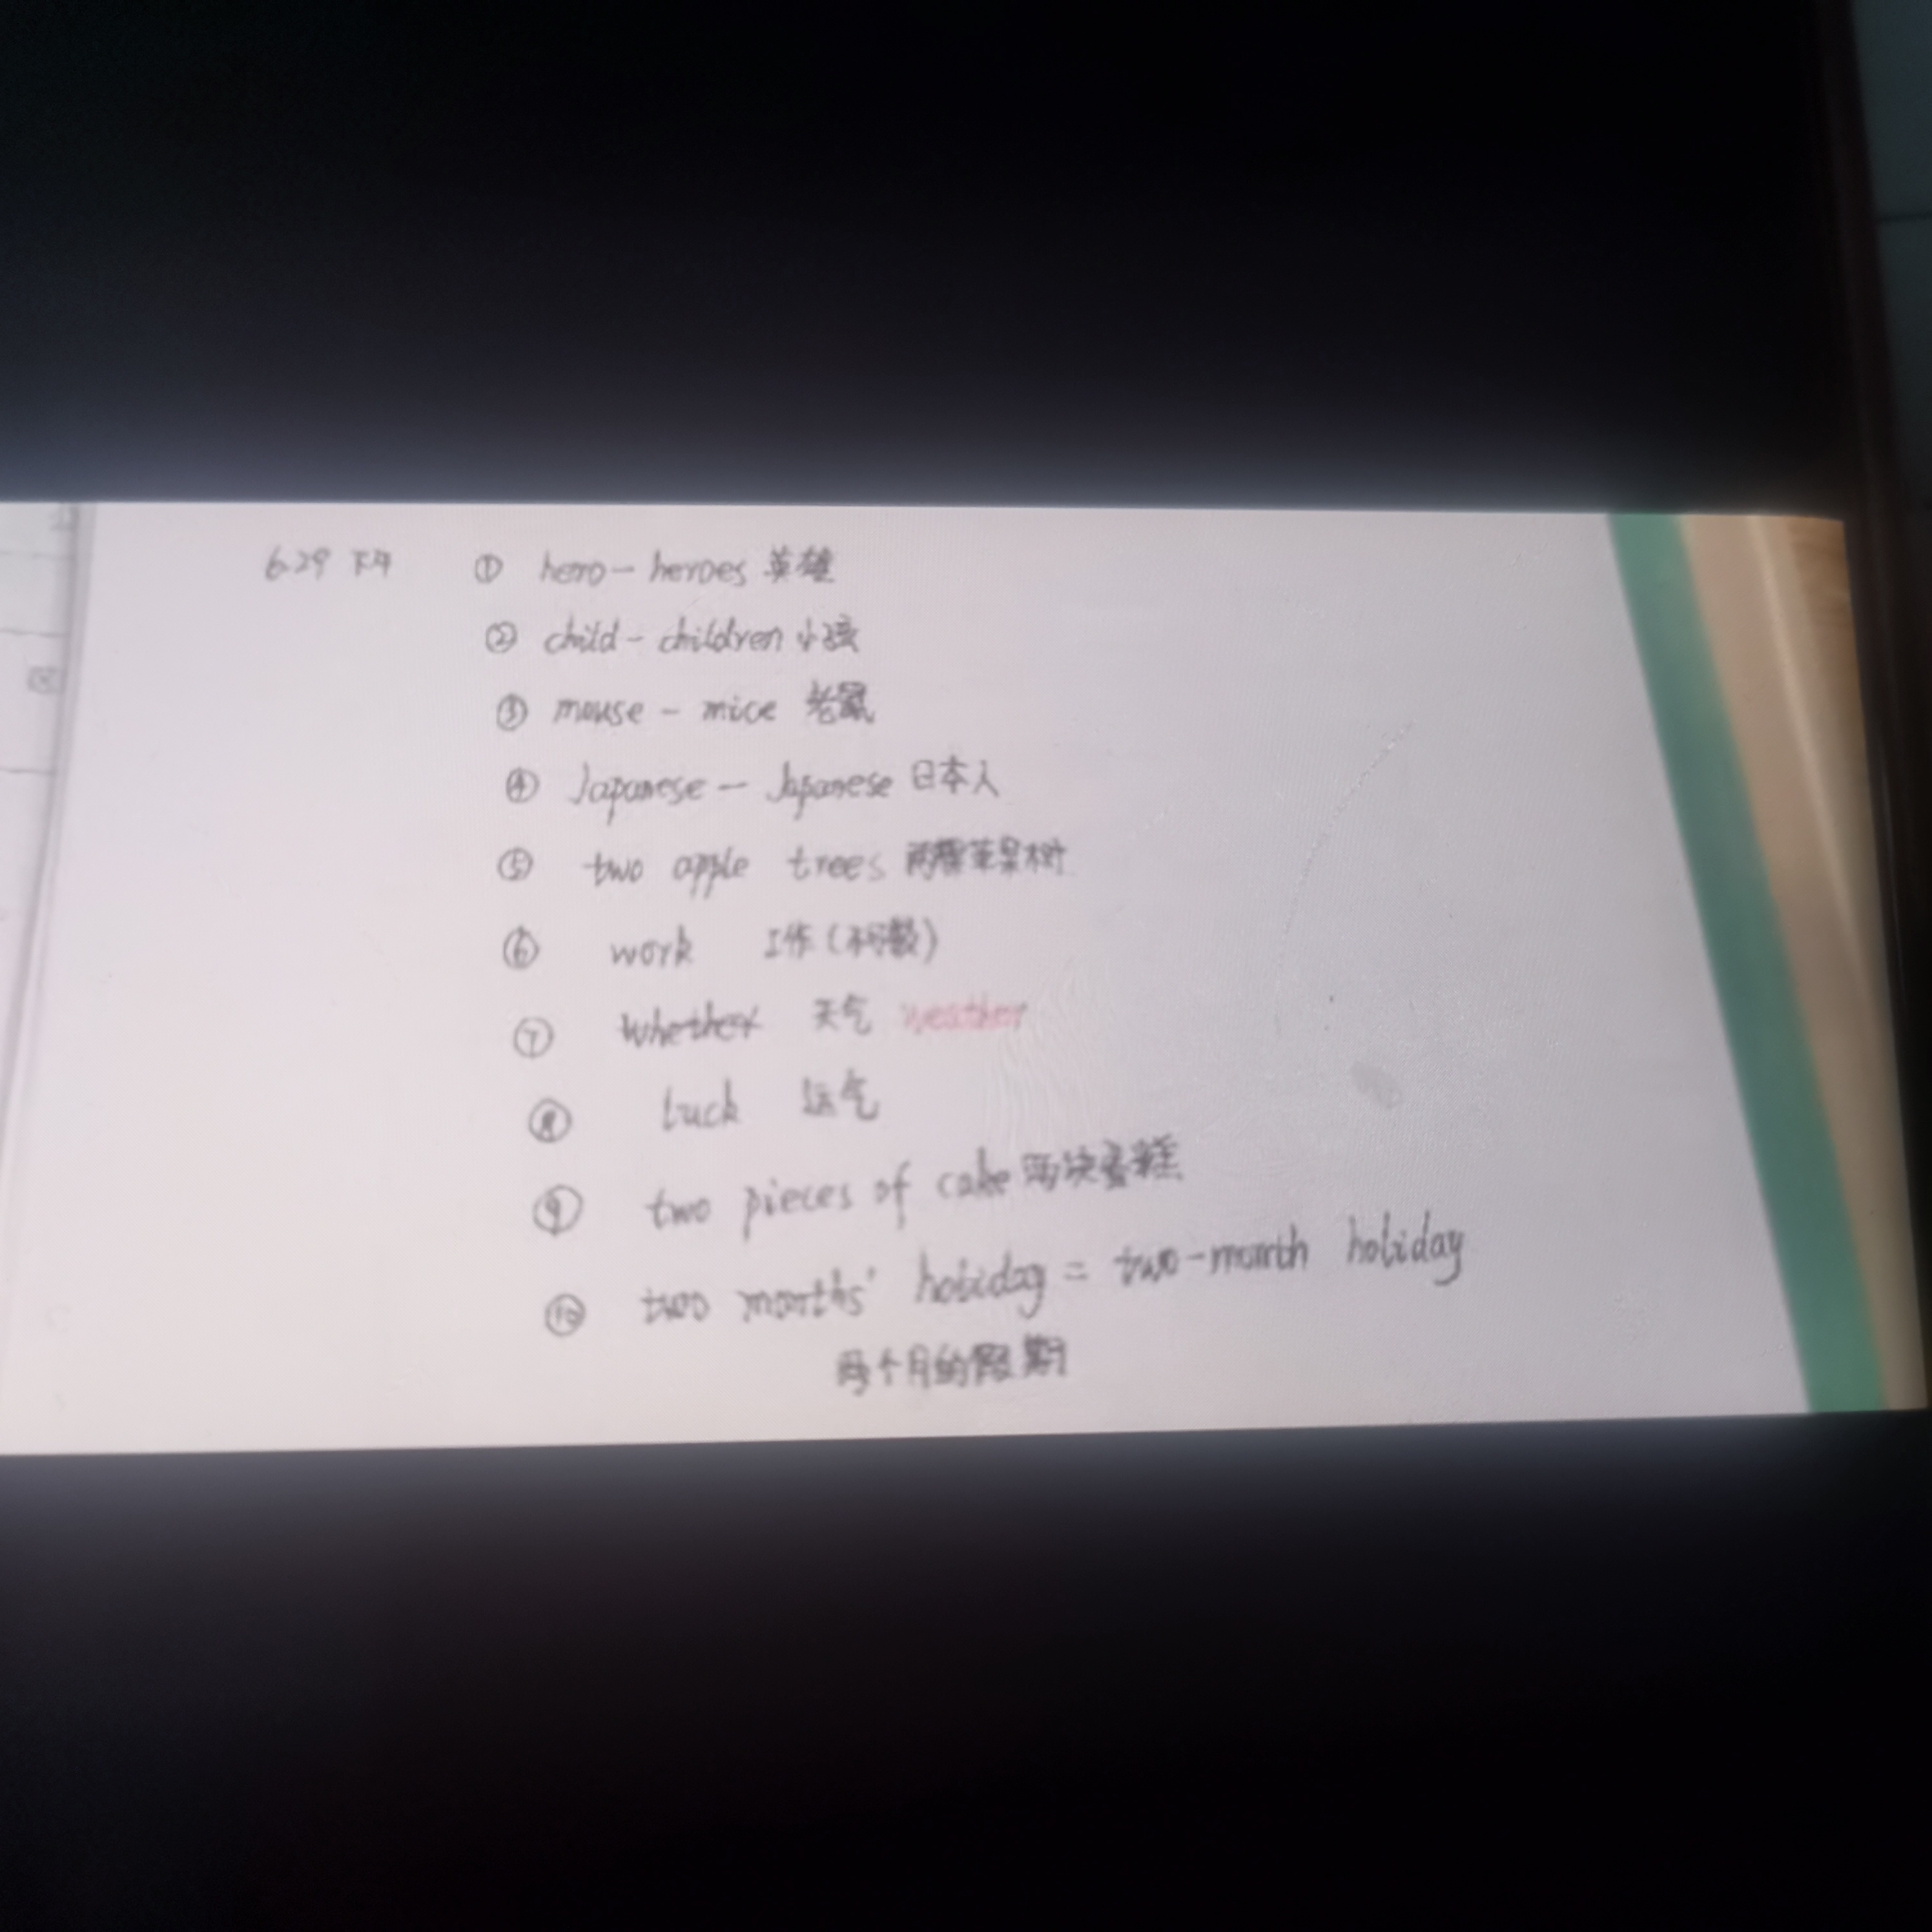 6.29 下午 ① hero - heroes 英雄
② child - children 小孩
③ mouse - mice 老鼠
④ Japanese - Japanese 日本人
⑤ two apple trees 两棵苹果树
⑥ work 工作(不可数)
⑦ whether 天气 weather
⑧ luck 运气
⑨ two pieces of cake 两块蛋糕
⑩ two months' holiday = two-month holiday
两个月的假期